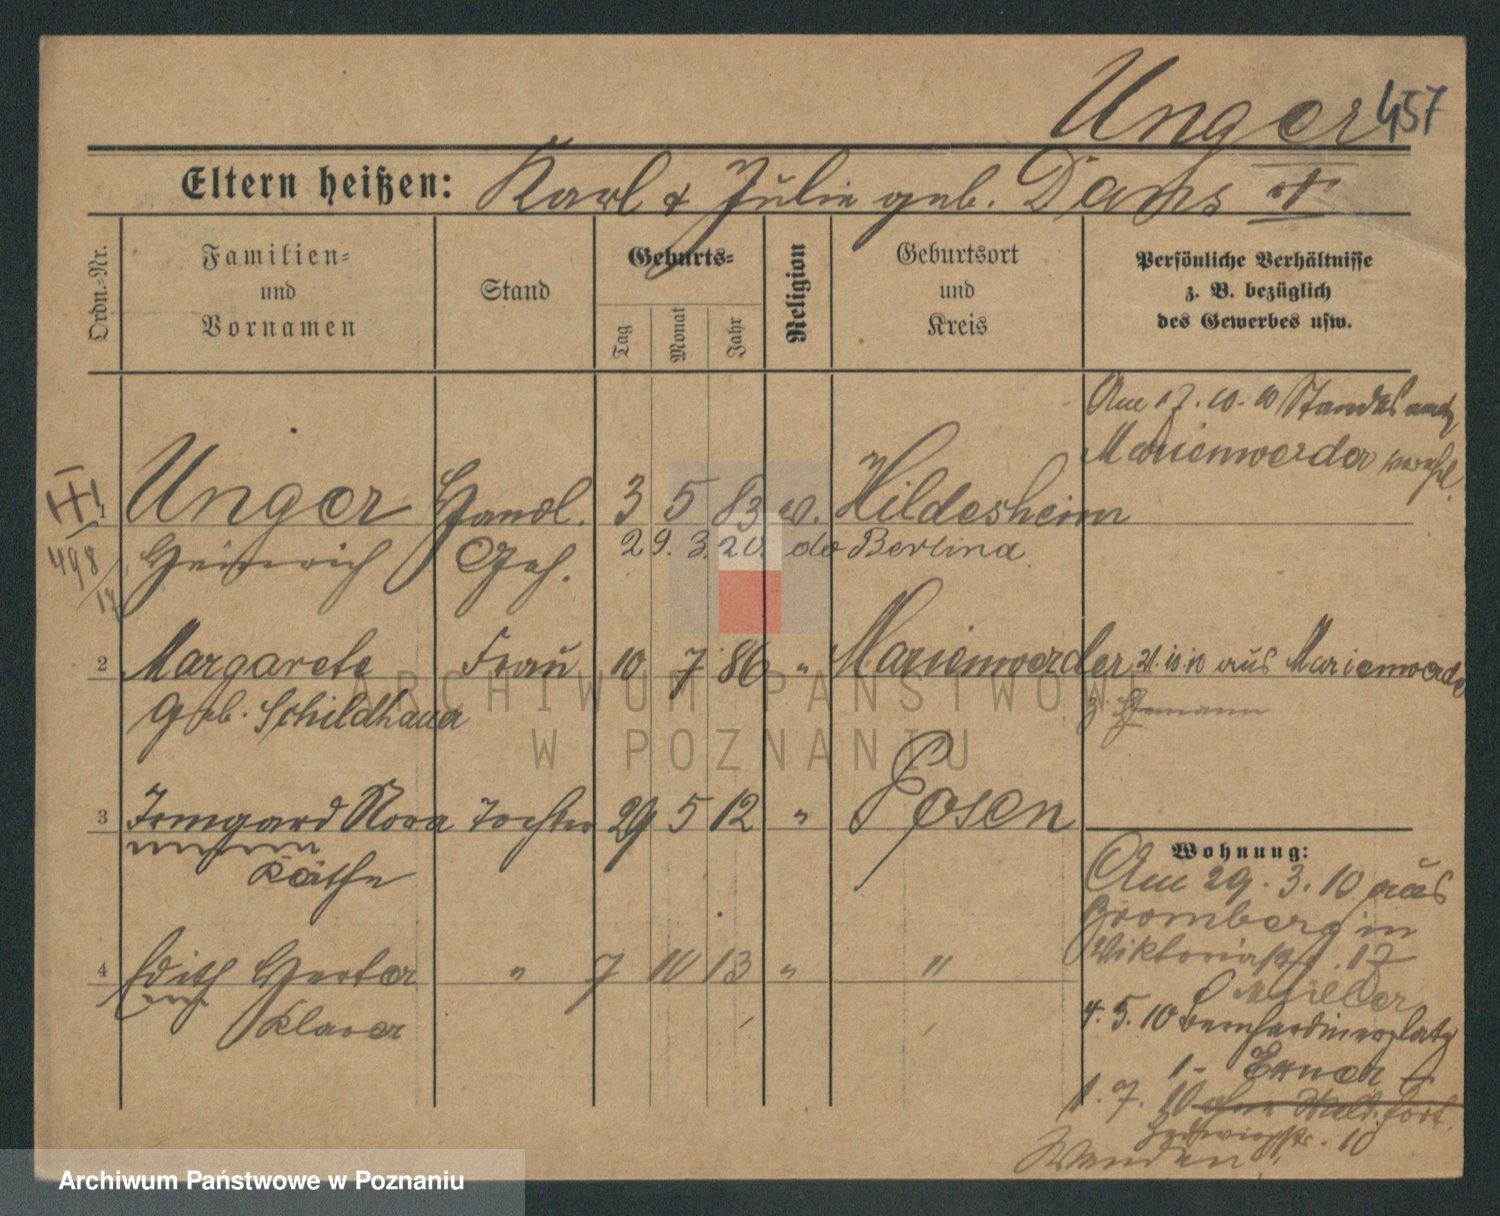 Unger 457
Eltern heißen: Karl & Julie geb. Dams
Ordn.-Nr.
Familien-
und
Vornamen
Stand
Geburts-
Tag
Monat
Jahr
Religion
Geburtsort
und
Kreis
Persönliche Verhältnisse
z. B. bezüglich
des Gewerbes usw.
Am 17.10.10 Standesamt
Marienwerder verehel.
1 Unger Handl. 3 5 83 ev. Hildesheim
Heinrich Geh. 29. 3. 20. do Berlin
498
17
2 Margarete Frau 10 7 86 " Marienwerder 21.10.10 aus Marienwerder
geb. Schildhauer z. Ehemann
3 Irmgard Nora Tochter 29 5 12 " Posen
Käthe
4 Edith Herta " 7 10 13 " "
Klara
Wohnung:
Am 29. 3. 10 aus
Bromberg in
Viktoriastr. 17
Müller
4. 5. 10 Bernhardinerplatz
1
1. 7. 10
10
ARCHIWUM PAŃSTWOWE
W POZNANIU
Archiwum Państwowe w Poznaniu